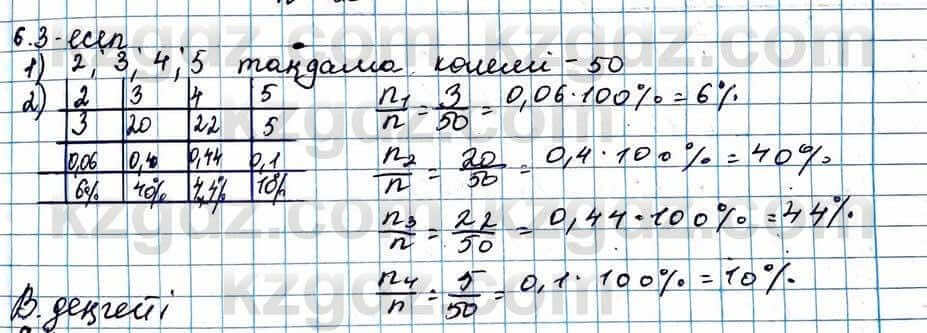 6.3-есеп
1) 2; 3; 4; 5 таңдама көлемі - 50
2) 2 3 4 5
3 20 22 5
0,06 0,40 0,44 0,1
6% 40% 44% 10%
n₁/n = 3/50 = 0,06·100% = 6%
n₂/n = 20/50 = 0,4·100% = 40%
n₃/n = 22/50 = 0,44·100% = 44%
n₄/n = 5/50 = 0,1·100% = 10%
В. деңгейі
kzgdz.com